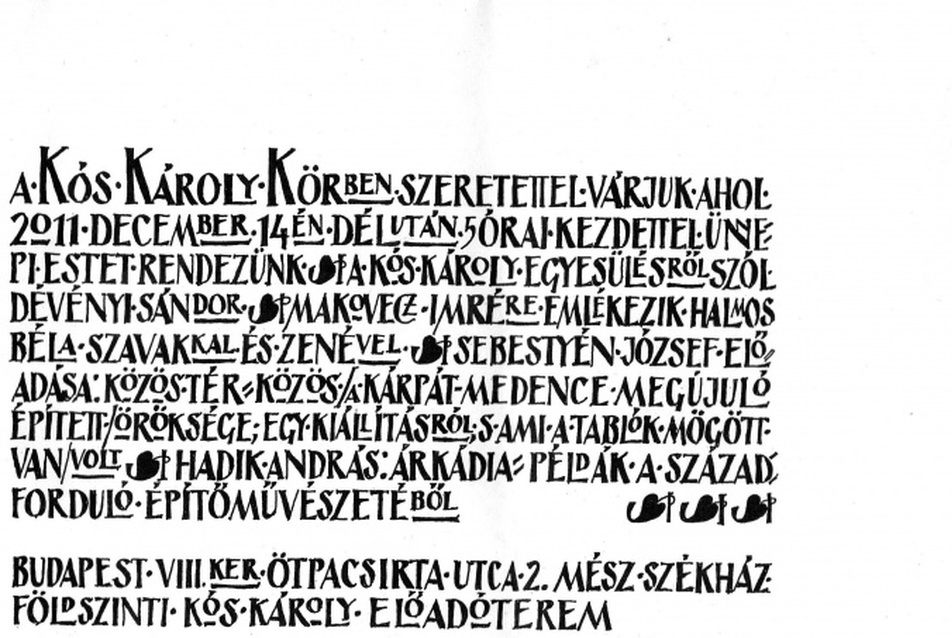 A·KÓS·KÁROLY·KÖRBEN·SZERETETTEL·VÁRJUK·AHOL·
2011·DECEMBER·14ÉN·DÉLUTÁN·5ÓRAI·KEZDETTEL·ÜNNE-
PI·ESTET·RENDEZÜNK·A·KÓS·KÁROLY·EGYESÜLÉSRŐL·SZÓL·
DÉVÉNYI·SÁNDOR·MAKOVECZ·IMRÉRE·EMLÉKEZIK·HALMOS
BÉLA·SZAVAKKAL·ÉS·ZENÉVEL·SEBESTYÉN·JÓZSEF·ELŐ=
ADÁSA:KÖZÖS·TÉR=KÖZÖS/A·KÁRPÁT-MEDENCE·MEGÚJULÓ
ÉPÍTETT/ÖRÖKSÉGE;EGY·KIÁLLÍTÁSRÓL;S·AMI·A·TABLÓK·MÖGÖTT·
VAN/VOLT HADIK·ANDRÁS:ÁRKÁDIA=PÉLDÁK·A·SZÁZAD-
FORDULÓ·ÉPÍTŐMŰVÉSZETÉBŐL
BUDAPEST·VIII.KER·ÖTPACSIRTA·UTCA·2. MÉSZ·SZÉKHÁZ·
FÖLDSZINTI·KÓS·KÁROLY·ELŐADÓTEREM